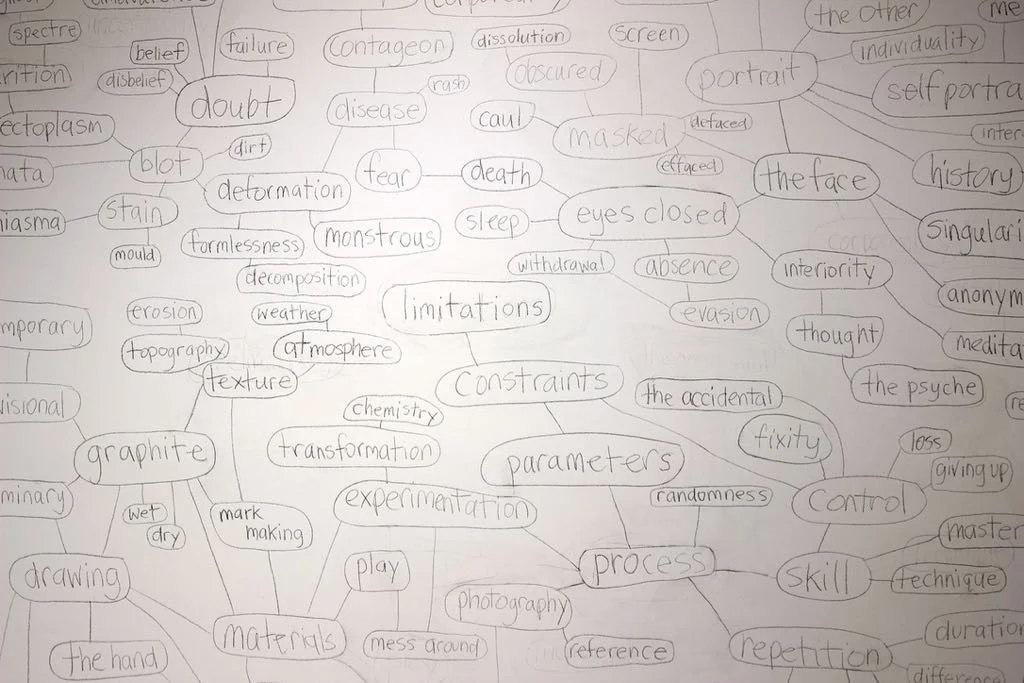 spectre
belief
failure
contageon
dissolution
screen
the Other
me
individuality
disbelief
obscured
portrait
doubt
rash
disease
caul
defaced
masked
ectoplasm
dirt
blot
effaced
fear
death
the face
history
deformation
stain
sleep
eyes closed
formlessness
monstrous
mould
withdrawal
absence
interiority
decomposition
limitations
evasion
erosion
weather
thought
topography
atmosphere
texture
constraints
the accidental
the psyche
chemistry
fixity
loss
graphite
transformation
parameters
giving up
randomness
control
experimentation
wet
dry
mark
making
process
play
skill
technique
drawing
photography
materials
mess around
reference
repetition
the hand
difference